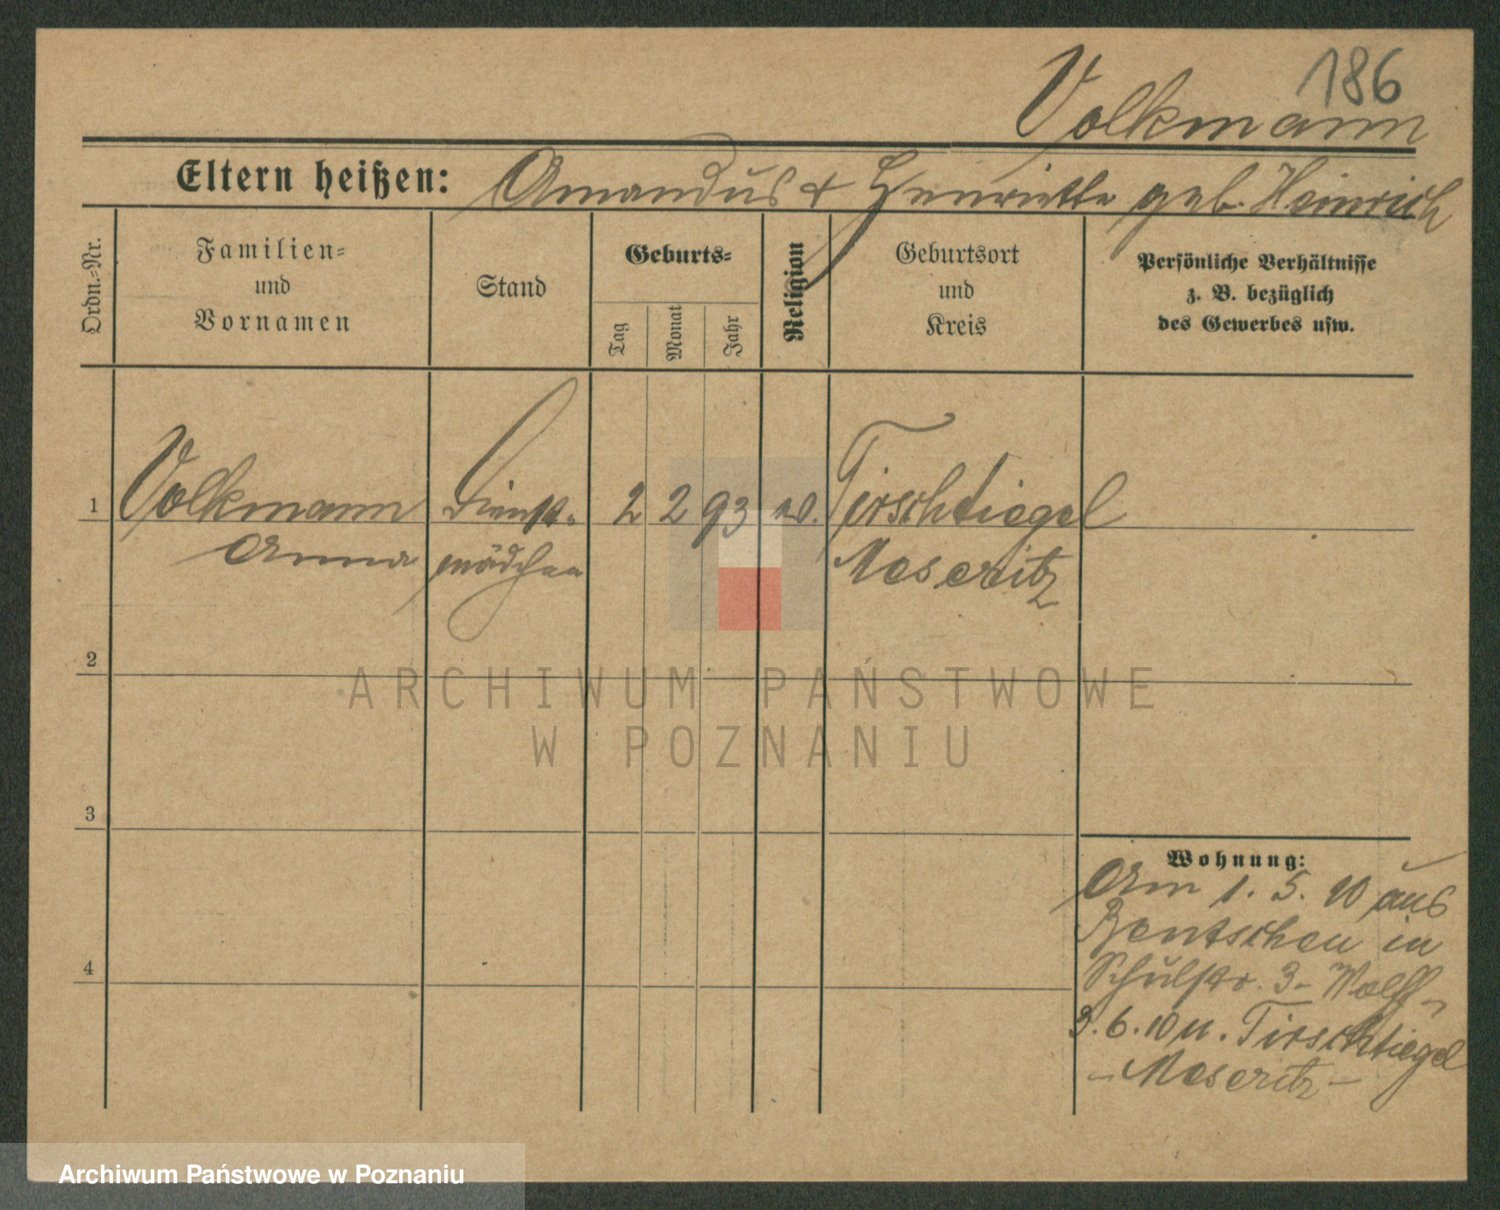 186
Volkmann
Eltern heißen: Amandus & Henriette geb. Heinrich
Ordn.-Nr.
Familien-
und
Vornamen
Stand
Geburts-
Tag
Monat
Jahr
Religion
Geburtsort
und
Kreis
Persönliche Verhältnisse
z. B. bezüglich
des Gewerbes usw.
1 Volkmann Dienst- 2 2 93 Tirschtiegel
Anna mädchen Meseritz
2
ARCHIWUM PAŃSTWOWE
W POZNANIU
3
Wohnung:
Am 1. 5. 10 aus
Bentschen in
Schulstr. 3 - Wolff -
3. 6. 10 n. Tirschtiegel
- Meseritz -
4
Archiwum Państwowe w Poznaniu